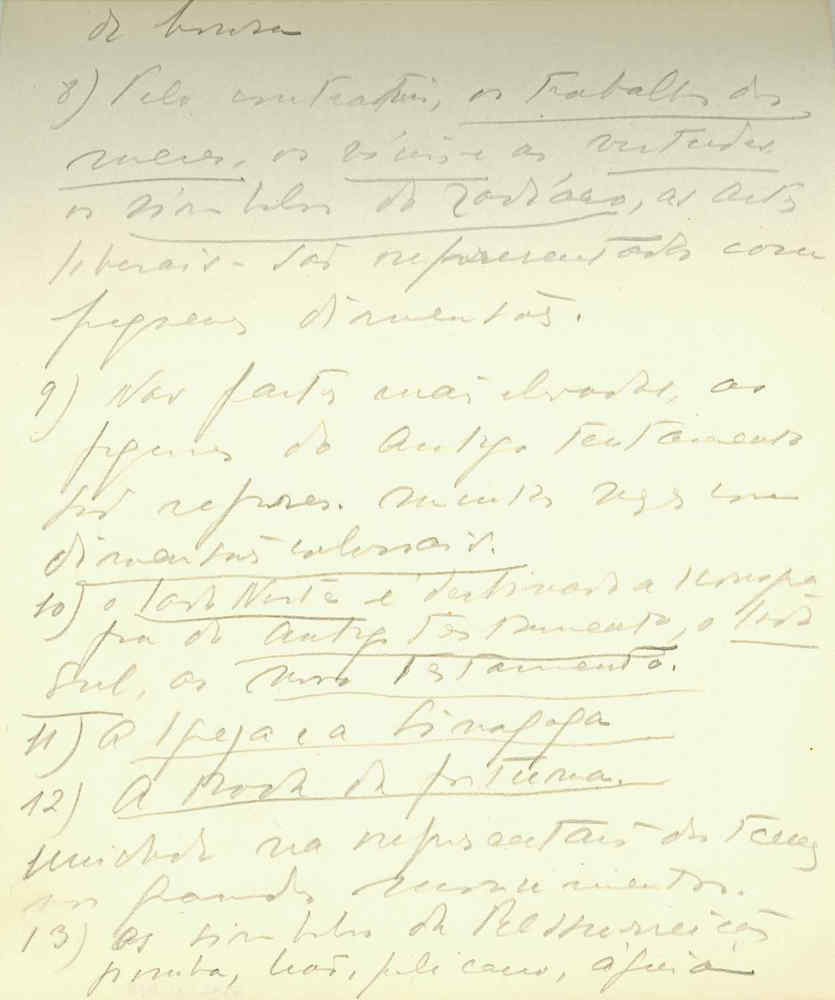 8) Pelo contrario, os trabalhos dos
meses, os vícios e as virtudes
os símbolos do Zodíaco, as artes
liberais - são representados com
pequenas dimensões.
9) Nas partes mais elevadas, as
figuras do Antigo Testamento
são repres. muitas vezes com
dimensões colossais.
10) o lado Norte é destinado a iconogra
fia do Antigo Testamento, o lado
Sul, ao Novo Testamento.
11) A Igreja e a Sinagoga
12) A Roda da fortuna.
Unidade na representação dos temas
nos grandes monumentos.
13) Os símbolos da Ressurreição
pomba, leão, pelicano, águia